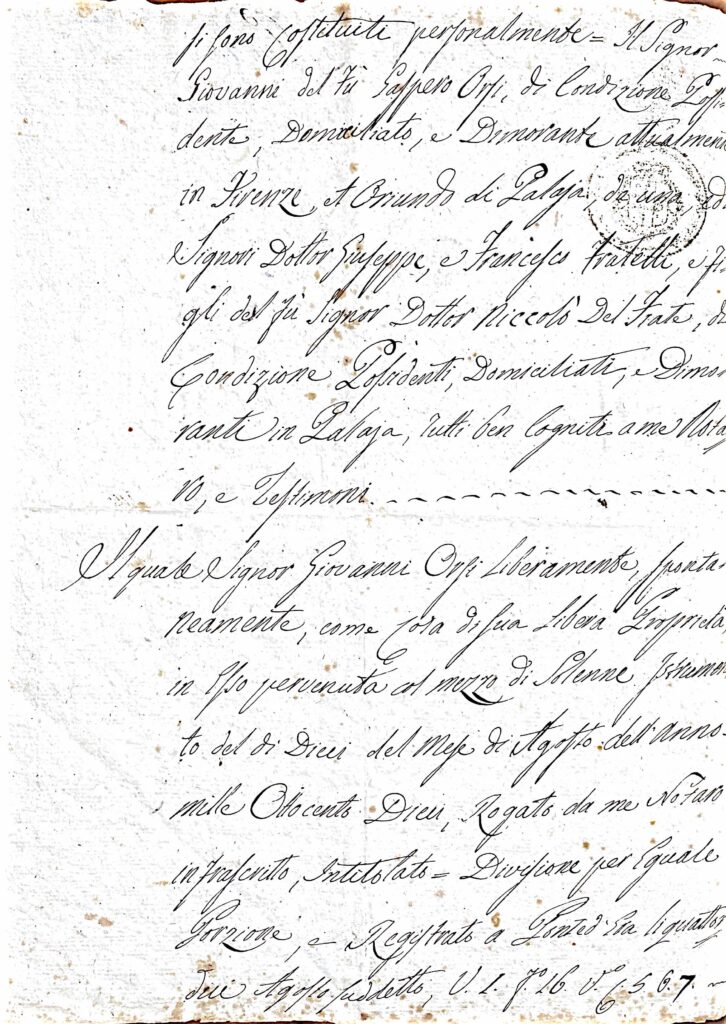 si sono Costituite personalmente = Il Signor
Giovanni del fù Gaspero Orsi, di Condizione Possi
dente, Domiciliato, e Dimorante attualmen
in Firenze, et Oriundo di Palaja, da una, ed
Signori Dottor Giuseppe, e Francesco Fratelli, e fi
gli del fù Signor Dottor Niccolò Del Frate, di
Condizione Possidenti, Domiciliati, e Dimo
ranti in Palaja, tutti ben Cogniti a me Nota
ro, e Testimoni
Il quale Signor Giovanni Orsi Liberamente, sponta
neamente, come cosa di sua Libera Proprietà
in Esso pervenuta col mezzo di Solenne Istrumen
to del dì Dieci del Mese di Agosto dell'Anno
mille Ottocento Dieci, Rogato da me Notaro
infrascritto, Intitolato = Divisione per Eguale
Porzione, e Registrato a Ponted'Era li quattor
dici Agosto suddetto, V. 1. f.° 16. v.° C. 5 6. 7.